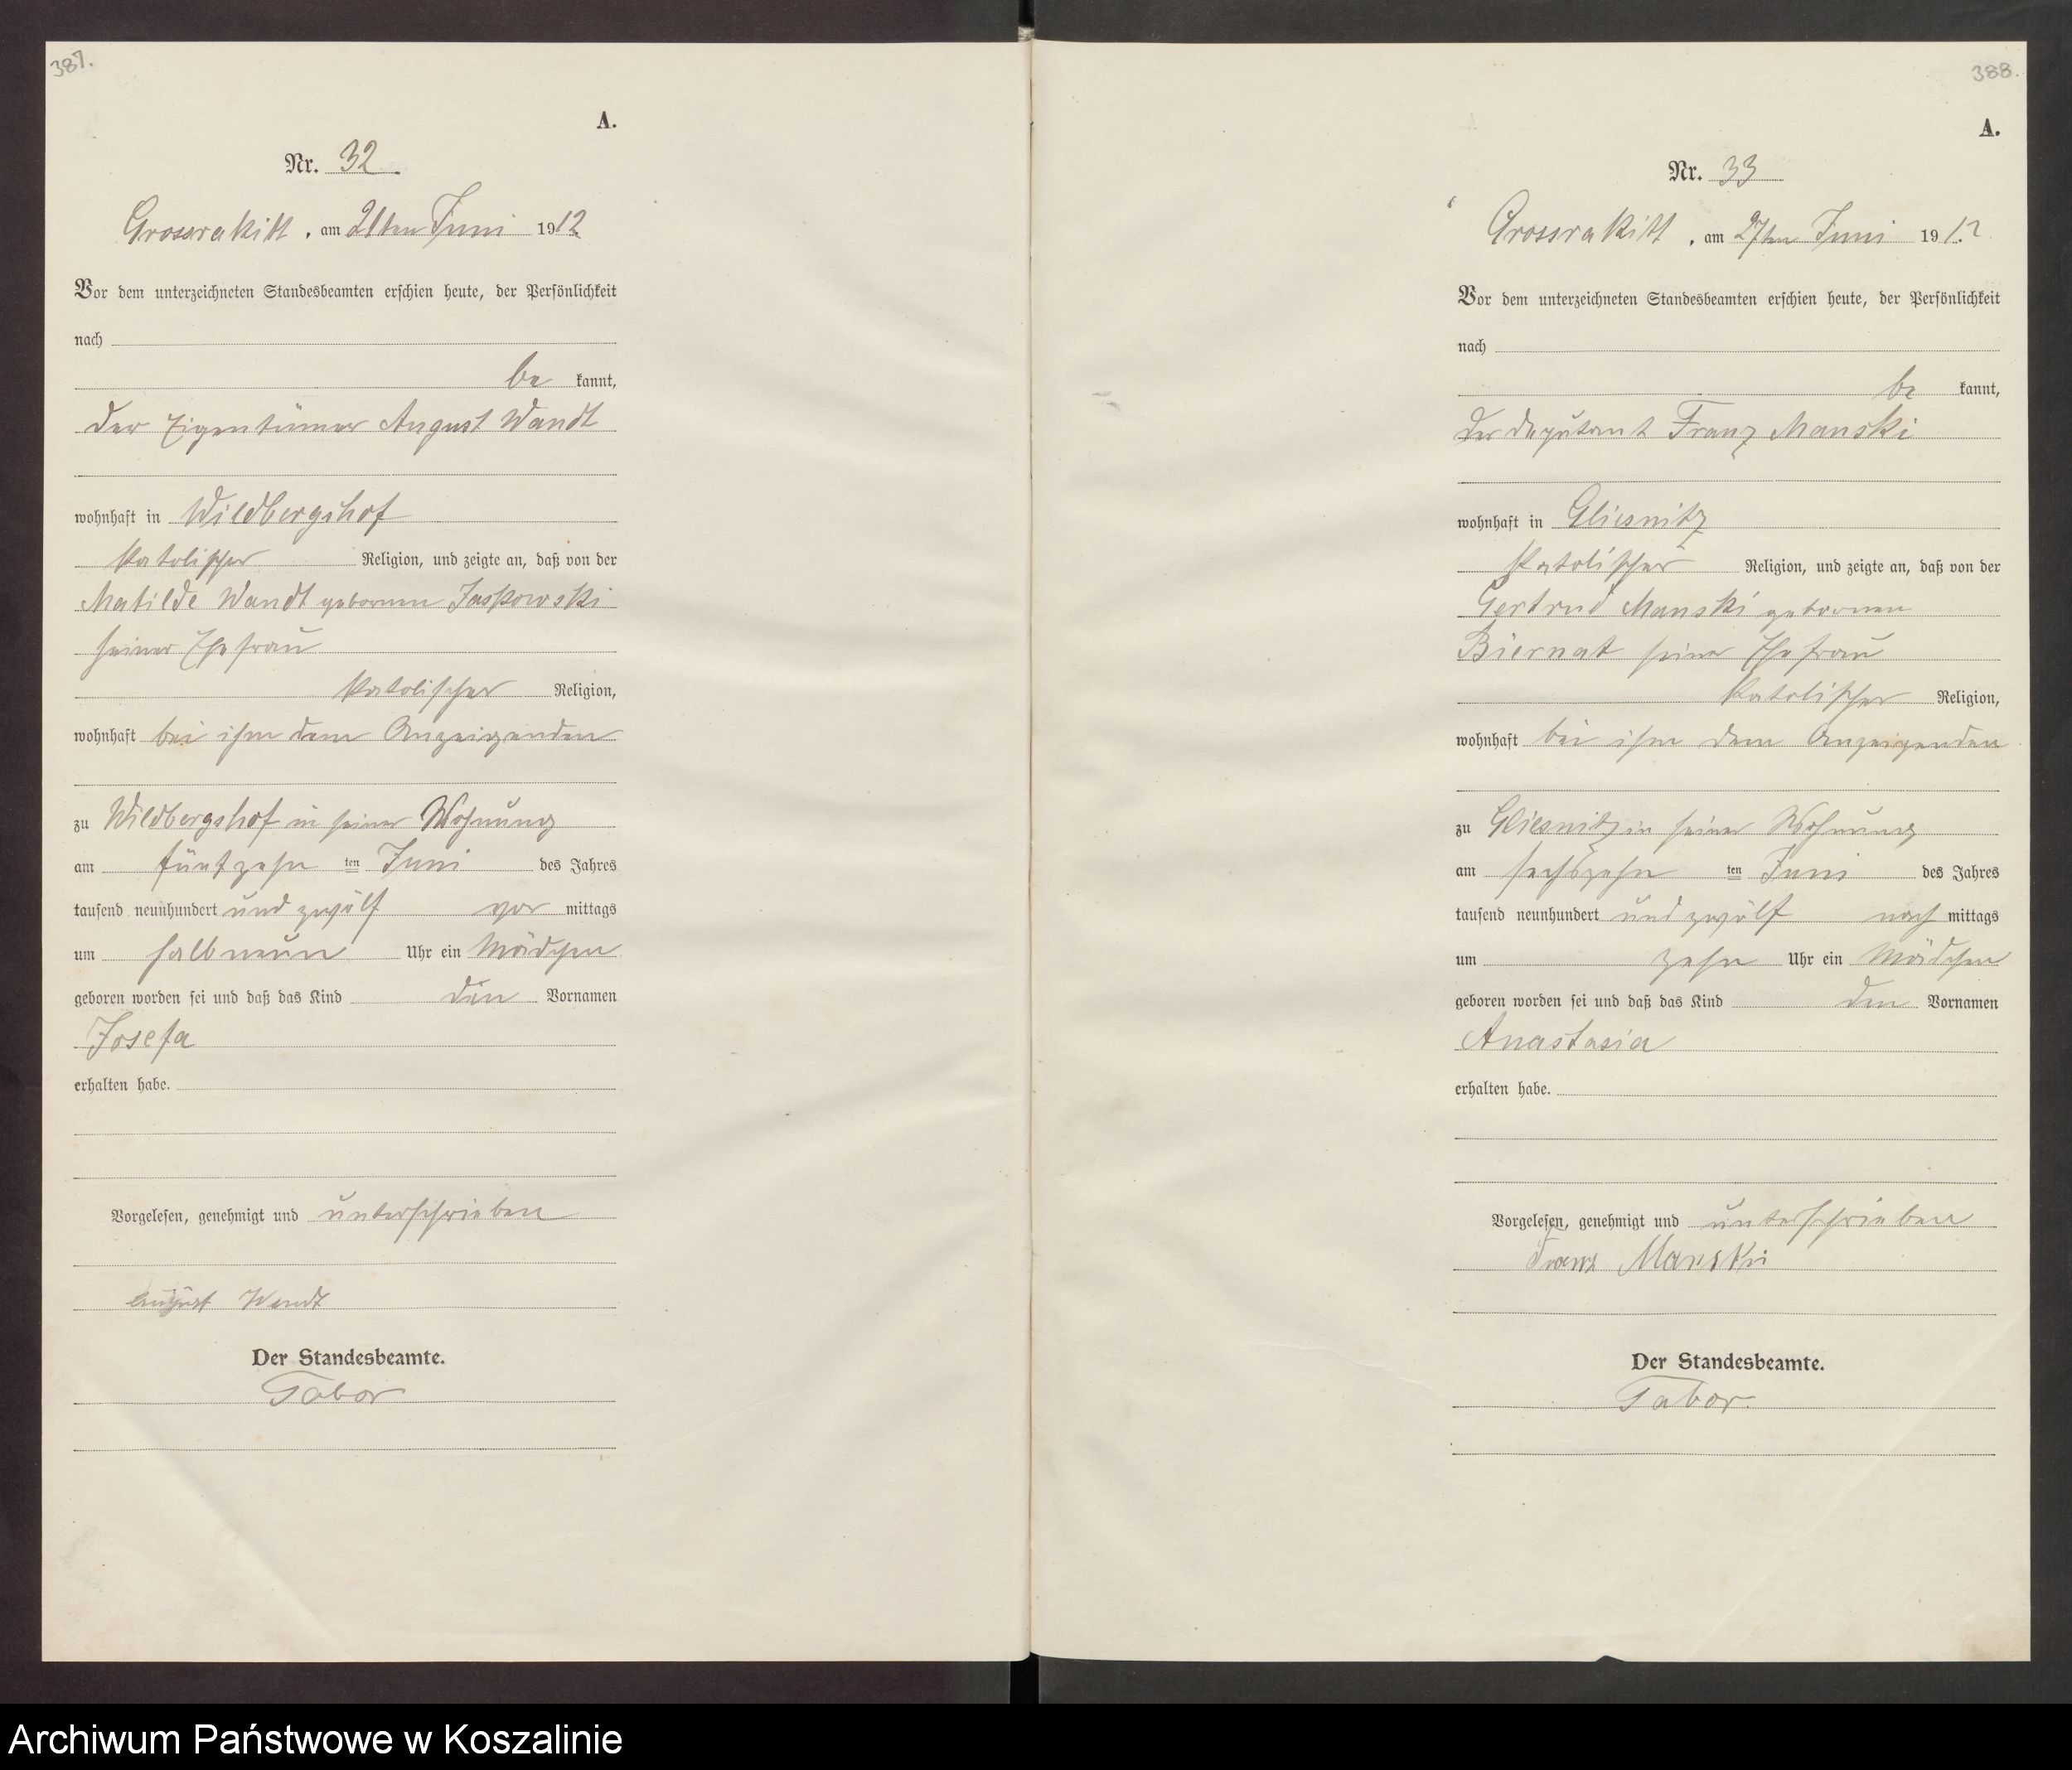 387.
A.
Nr. 32
Grossrakitt, am 21ten Juni 1912
Vor dem unterzeichneten Standesbeamten erschien heute, der Persönlichkeit
nach
be kannt,
der Eigentümer August Wandt
wohnhaft in Wildbergshof
katolischer Religion, und zeigte an, daß von der
Matilde Wandt gebornen Jaskowski
seiner Ehefrau
katolischer Religion,
wohnhaft bei ihm dem Anzeigenden
zu Wildbergshof in seiner Wohnung
am fünfzehn ten Juni des Jahres
tausend neunhundert und zwölf vor mittags
um halb neun Uhr ein Mädchen
geboren worden sei und daß das Kind den Vornamen
Josefa
erhalten habe.
Vorgelesen, genehmigt und unterschrieben
August Wandt
Der Standesbeamte.
Tabor
388.
A.
Nr. 33
Grossrakitt, am 27ten Juni 1912
Vor dem unterzeichneten Standesbeamten erschien heute, der Persönlichkeit
nach
be kannt,
der Deputant Franz Manski
wohnhaft in Gliesnitz
katolischer Religion, und zeigte an, daß von der
Gertrud Manski gebornen
Biernat seiner Ehefrau
katolischer Religion,
wohnhaft bei ihm dem Anzeigenden
zu Gliesnitz in seiner Wohnung
am sechszehn ten Juni des Jahres
tausend neunhundert und zwölf nach mittags
um zehn Uhr ein Mädchen
geboren worden sei und daß das Kind den Vornamen
Anastasia
erhalten habe.
Vorgelesen, genehmigt und unterschrieben
Franz Manski
Der Standesbeamte.
Tabor.
Archiwum Państwowe w Koszalinie